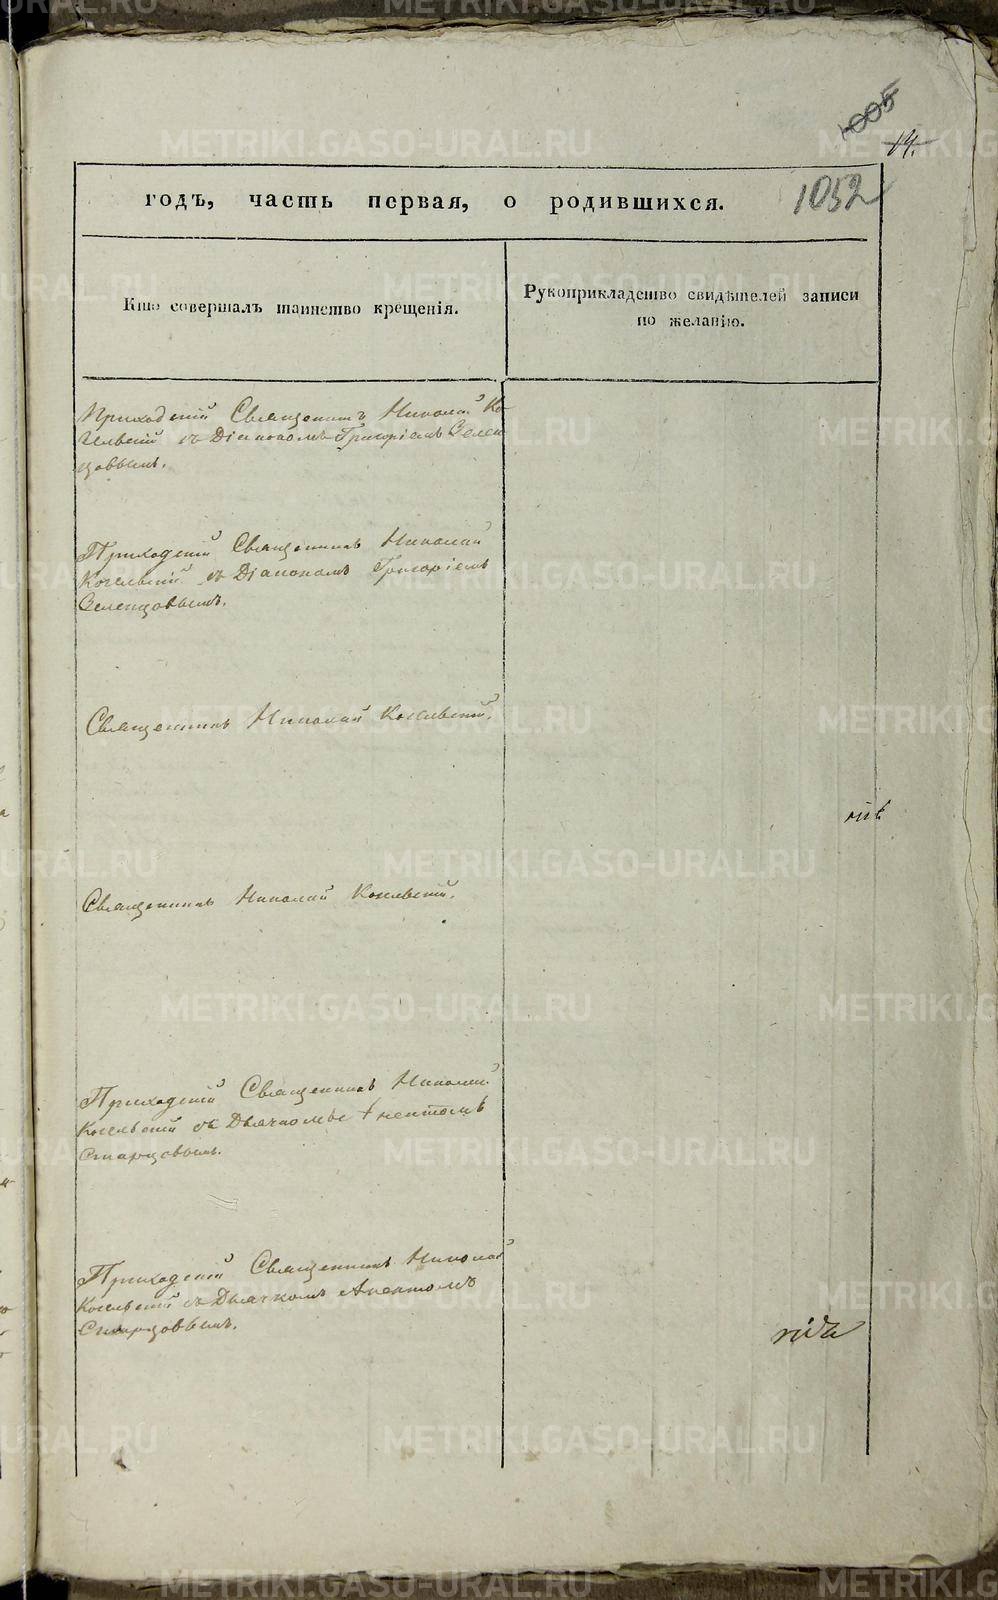 1005
14.
1052
годъ, часть первая, о родившихся.
Кто совершалъ таинство крещенія.
Рукоприкладство свидѣтелей записи
по желанію.
Приходскій Священникъ Николай Ко-
гельскій съ Діакономъ Григоріемъ Селен
цовымъ.
Приходскій Священникъ Николай
Когельскій съ Діакономъ Григоріемъ
Селенцовымъ.
Священникъ Николай Когельскій.
Священникъ Николай Когельскій.
Приходскій Священникъ Николай
Когельскій съ Дьячкомъ
Старцовымъ.
Приходскій Священникъ Николай
Когельскій съ Дьячкомъ
Старцовымъ.
METRIKI.GASO-URAL.RU